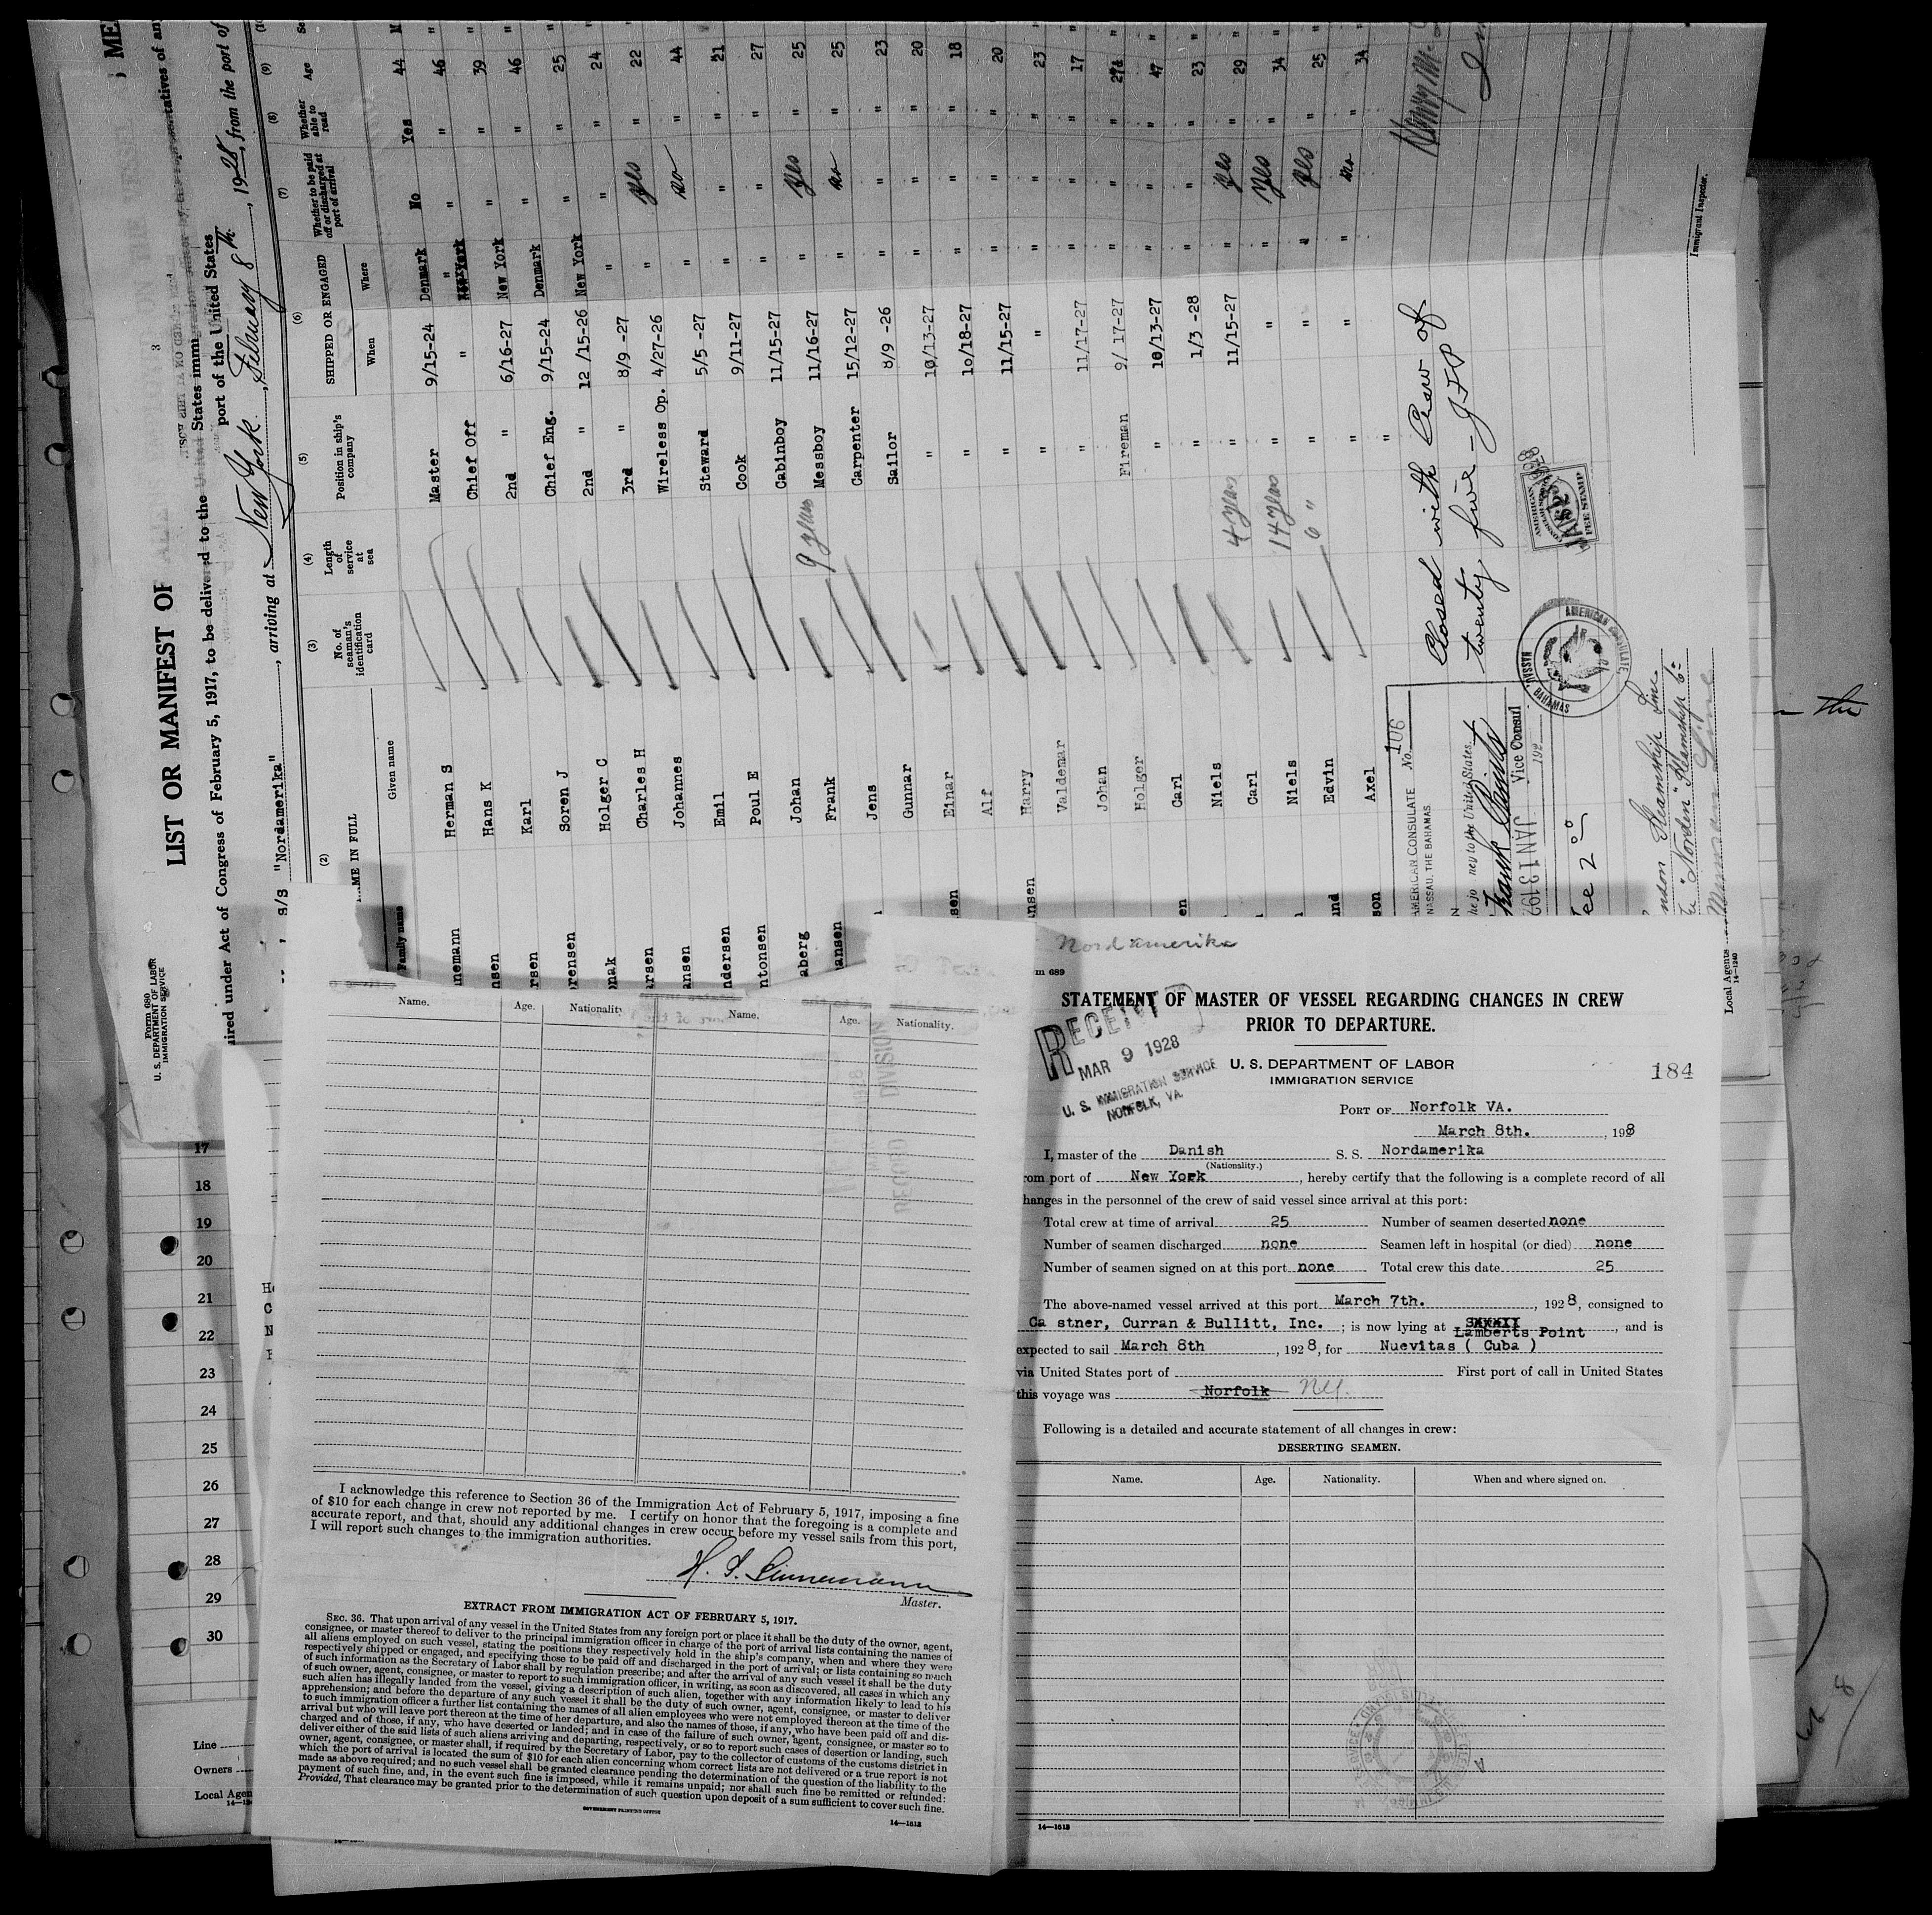 LIST OR MANIFEST OF
Form 680
U. S. DEPARTMENT OF LABOR
IMMIGRATION SERVICE
uired under Act of Congress of February 5, 1917, to be delivered to the United States immi
port of the United States
S/S "Nordamerika", arriving at New York, February 8th, 1928, from the port of
(2) (3) (4) (5) (6) (7) (8) (9)
NAME IN FULL
Family name Given name
No. of seaman's identification card
Length of service at sea
Position in ship's company
SHIPPED OR ENGAGED
When Where
Whether to be paid off or discharged at port of arrival
Whether able to read
Age
nnemann Herman S Master 9/15-24 Denmark No Yes 44
nsen Hans K Chief Off " " " " 46
rsen Karl 2nd " 6/16-27 New York " " 39
orensen Soren J Chief Eng. 9/15-24 Denmark " " 46
onak Holger C 2nd " 12/15-26 New York " " 25
arsen Charles H 3rd " 8/9 -27 " " " 24
ansen Johannes Wireless Op. 4/27-26 " yes " 22
ndersen Emil Steward 5/5 -27 " no " 44
ntonsen Poul E Cook 9/11-27 " " " 21
aberg Johan Cabinboy 11/15-27 " " " 27
hansen Frank 9 years Messboy 11/16-27 " yes " 25
Jens Carpenter 15/12-27 " no " 25
Gunnar Sailor 8/9 -26 " " " 23
sen Einar " 10/13-27 " " " 20
Alf " 10/18-27 " " " 18
ansen Harry " 11/15-27 " " " 20
Valdemar " " " " " 23
Johan " 11/17-27 " " " 17
Holger Fireman 9/ 17-27 " " "
Carl " 10/13-27 " " " 47
en Niels " 1/3 -28 " " " 23
Carl 4 years " 11/15-27 " yes " 29
Niels 14 years " " " yes " 34
und Edvin 6 " " " " yes " 25
son Axel " " " no " 34
Closed with Crew of
twenty five - JFP
AMERICAN CONSULATE
NASSAU, THE BAHAMAS
No. 106
ney to the United States.
Vice Consul
JAN 13 192
Fee 2.00
AMERICAN CONSULATE, NASSAU, BAHAMAS
FEE STAMP
Steamship Line
"Norden" Steamship Co.
Munson Line
Local Agents
14—1240
Immigrant Inspector.
17
18
19
20
21
22
23
24
25
26
27
28
29
30
Line
Owners
Local Agen
the
Name. Age. Nationality Name. Age. Nationality.
I acknowledge this reference to Section 36 of the Immigration Act of February 5, 1917, imposing a fine
of $10 for each change in crew not reported by me. I certify on honor that the foregoing is a complete and
accurate report, and that, should any additional changes in crew occur before my vessel sails from this port,
I will report such changes to the immigration authorities.
H. S. Linnemann
Master.
EXTRACT FROM IMMIGRATION ACT OF FEBRUARY 5, 1917.
SEC. 36. That upon arrival of any vessel in the United States from any foreign port or place it shall be the duty of the owner, agent,
consignee, or master thereof to deliver to the principal immigration officer in charge of the port of arrival lists containing the names of
all aliens employed on such vessel, stating the positions they respectively hold in the ship's company, when and where they were
respectively shipped or engaged, and specifying those to be paid off and discharged in the port of arrival; or lists containing so much
of such information as the Secretary of Labor shall by regulation prescribe; and after the arrival of any such vessel it shall be the duty
of such owner, agent, consignee, or master to report to such immigration officer, in writing, as soon as discovered, all cases in which any
such alien has illegally landed from the vessel, giving a description of such alien, together with any information likely to lead to his
apprehension; and before the departure of any such vessel it shall be the duty of such owner, agent, consignee, or master to deliver
to such immigration officer a further list containing the names of all alien employees who were not employed thereon at the time of the
arrival but who will leave port thereon at the time of her departure, and also the names of those, if any, who have been paid off and dis-
charged and of those, if any, who have deserted or landed; and in case of the failure of such owner, agent, consignee, or master so to
deliver either of the said lists of such aliens arriving and departing, respectively, or so to report such cases of desertion or landing, such
owner, agent, consignee, or master shall, if required by the Secretary of Labor, pay to the collector of customs of the customs district in
which the port of arrival is located the sum of $10 for each alien concerning whom correct lists are not delivered or a true report is not
made as above required; and no such vessel shall be granted clearance pending the determination of the question of the liability to the
payment of such fine, and, in the event such fine is imposed, while it remains unpaid; nor shall such fine be remitted or refunded:
Provided, That clearance may be granted prior to the determination of such question upon deposit of a sum sufficient to cover such fine.
GOVERNMENT PRINTING OFFICE
14—1613
Nordamerika
m 689
STATEMENT OF MASTER OF VESSEL REGARDING CHANGES IN CREW
PRIOR TO DEPARTURE.
RECEIVED
MAR 9 1928
U. S. IMMIGRATION SERVICE
NORFOLK, VA.
U. S. DEPARTMENT OF LABOR
IMMIGRATION SERVICE
184
PORT OF Norfolk VA.
March 8th. , 1928
I, master of the Danish S. S. Nordamerika
(Nationality.)
rom port of New York , hereby certify that the following is a complete record of all
hanges in the personnel of the crew of said vessel since arrival at this port:
Total crew at time of arrival 25 Number of seamen deserted none
Number of seamen discharged none Seamen left in hospital (or died) none
Number of seamen signed on at this port none Total crew this date 25
The above-named vessel arrived at this port March 7th. , 1928, consigned to
Ca stner, Curran & Bullitt, Inc. ; is now lying at Lamberts Point , and is
expected to sail March 8th , 1928, for Nuevitas ( Cuba )
via United States port of First port of call in United States
this voyage was Norfolk NY.
Following is a detailed and accurate statement of all changes in crew:
DESERTING SEAMEN.
Name. Age. Nationality. When and where signed on.
14—1613